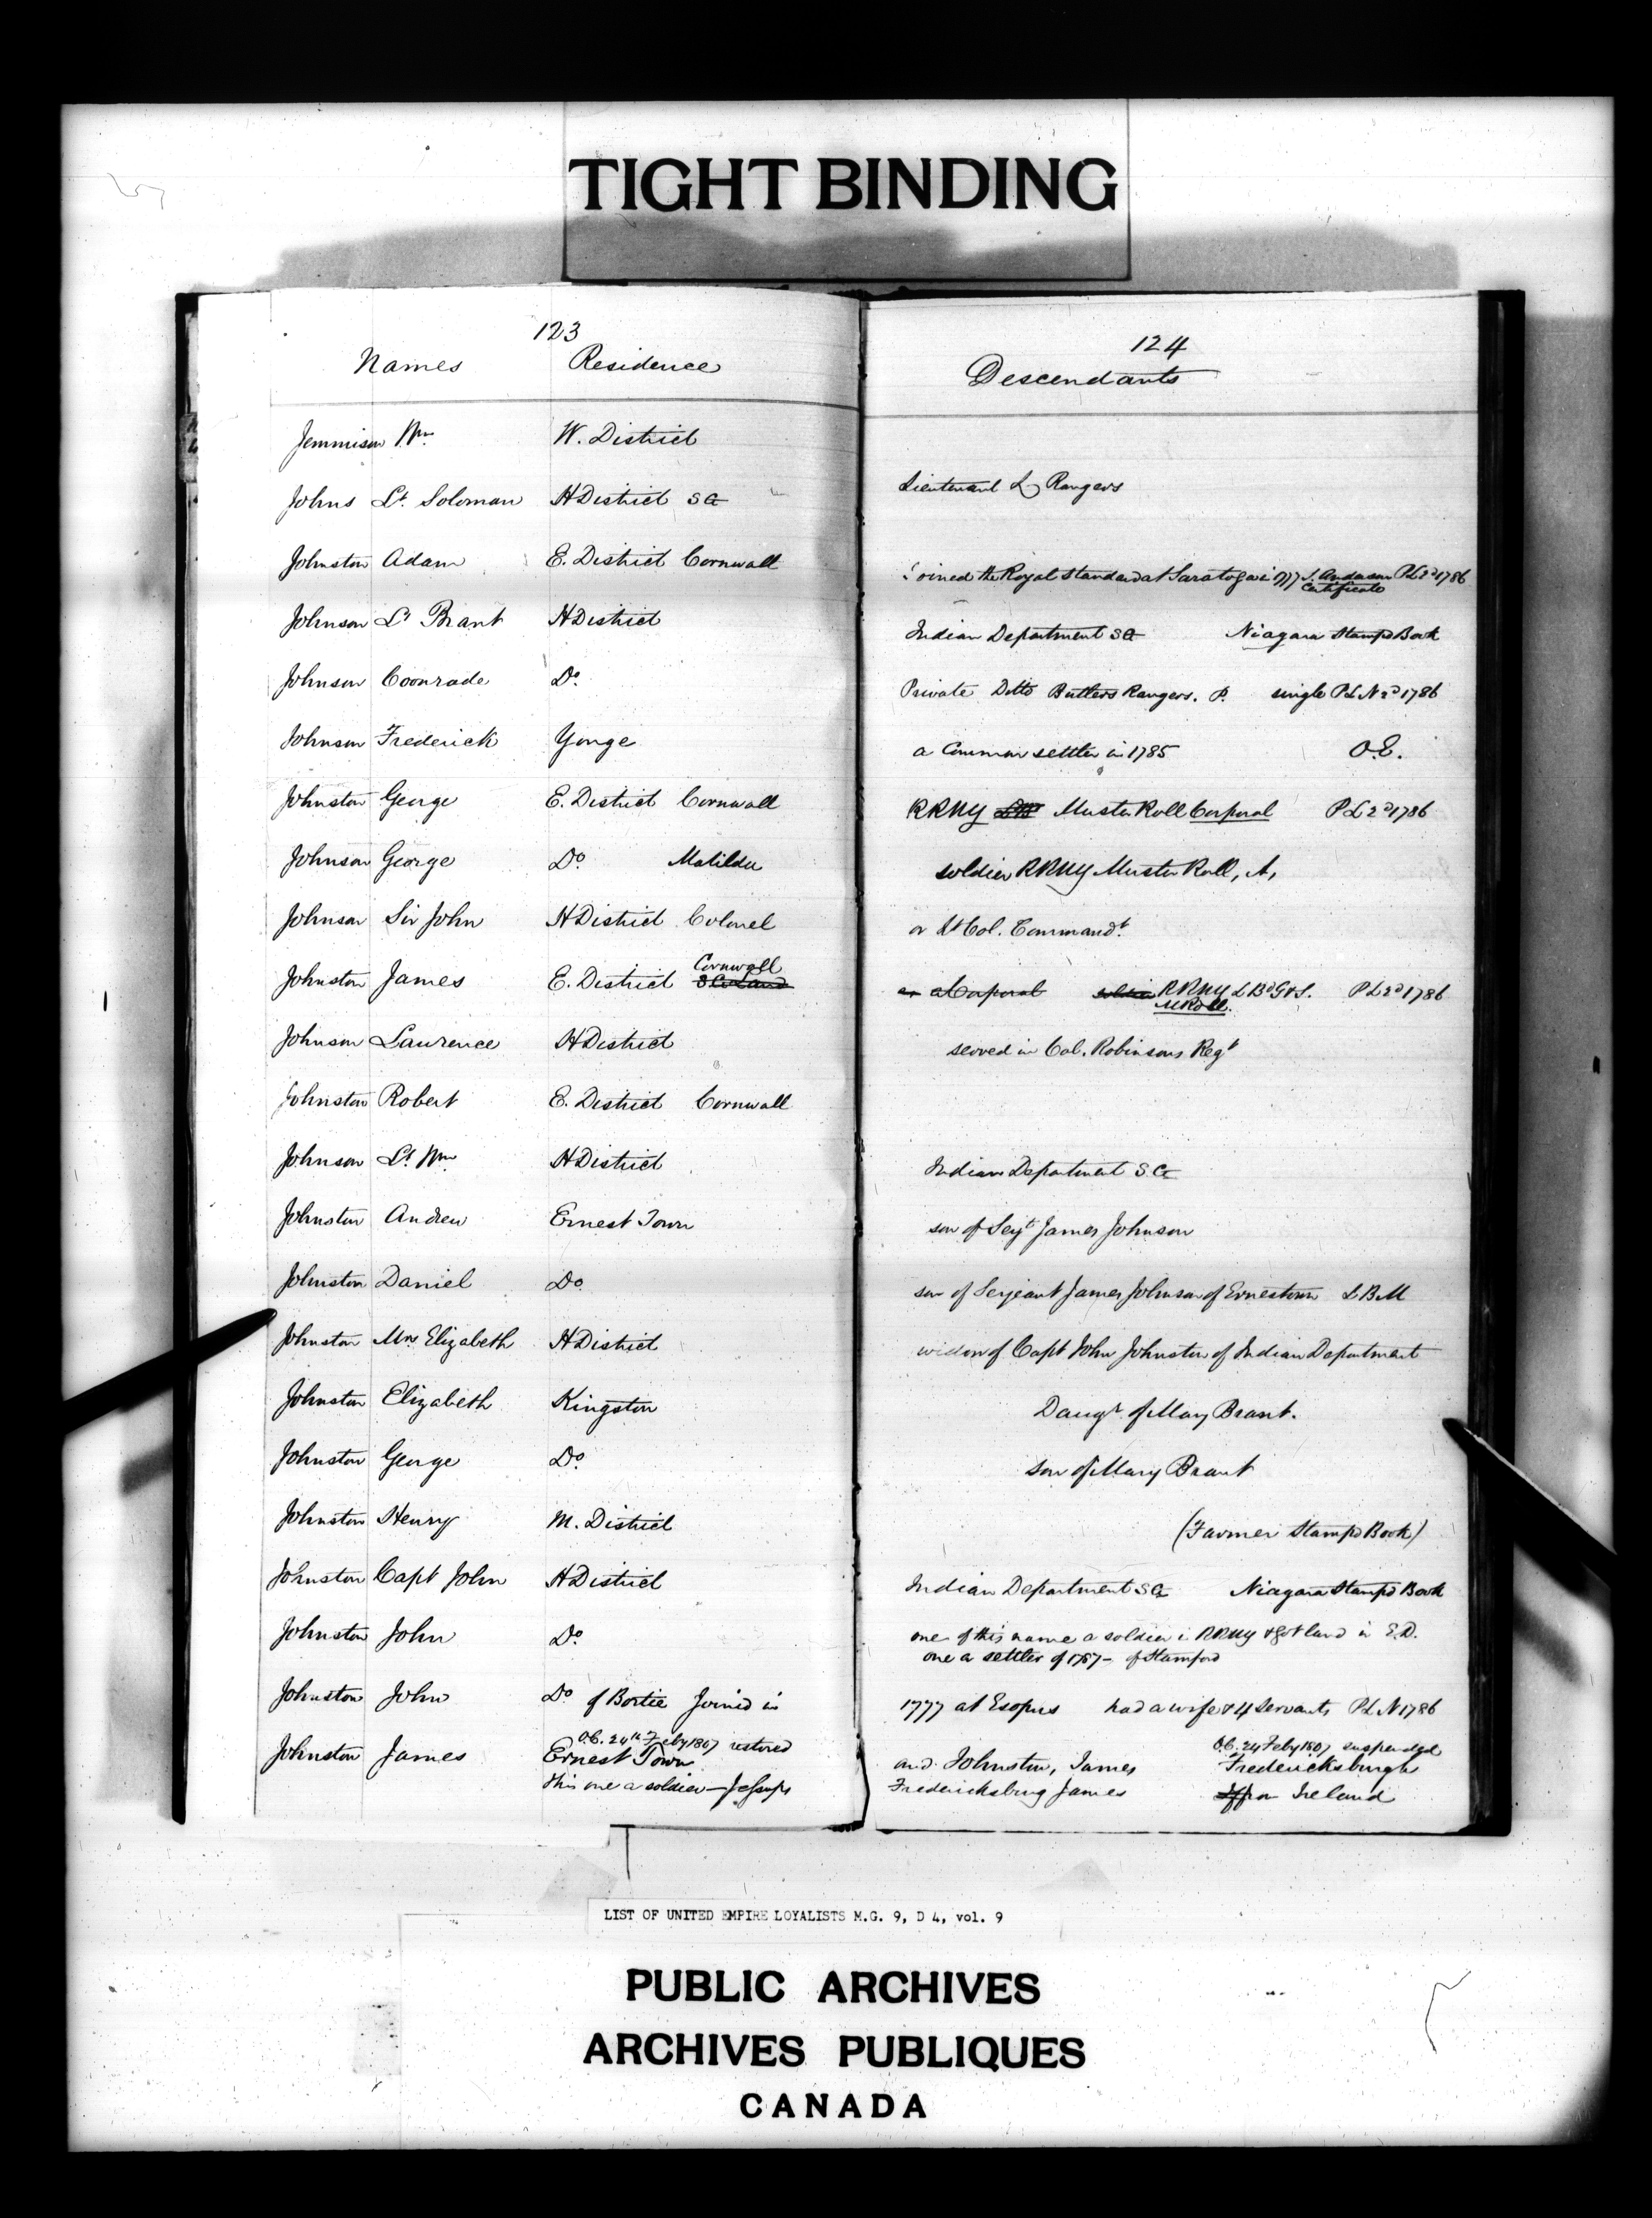 TIGHT BINDING
123
Names Residence
Jemmison Wm. W. District
Johns Lt. Soloman H District S G
Johnston Adam E. District Cornwall
Johnson Lt Brant H District
Johnson Coonrade Do.
Johnson Frederick Yonge
Johnston George E. District Cornwall
Johnson George Do. Matilda
Johnson Sir John H District Colonel
Cornwall
Johnston James E. District
Johnson Lawrence H District
Johnston Robert E. District Cornwall
Johnson Lt. Wm H District
Johnston Andrew Ernest Town
Johnston Daniel Do.
Johnston Mrs Elizabeth H District
Johnston Elizabeth Kingston
Johnston George Do.
Johnston Henry M. District
Johnston Capt John H District
Johnston John Do.
Johnston John Do of Bertie Joined in
O.C. 24th Feby 1807 restored
Johnston James Ernest Town
this one a soldier — Jessups
124
Descendants
Lieutenant Rangers
Joined the Royal Standard at Saratoga in 1777 S. Anderson PL 2d 1786
Certificate
Indian Department S G Niagara Stampd Book
Private Ditto Butlers Rangers. P. single PL N 2d 1786
a Common settler in 1785 O.E.
RRNY Muster Roll Corporal PL 2d 1786
soldier RRNY Muster Roll, A,
or Lt Col. Commandt.
a Corporal soldier RRNY L Bd G & S. PL 2d 1786
M Roll.
served in Col. Robinsons Regt
Indian Department S G
son of Serjt James Johnson
son of Serjeant James Johnson of Ernestown L B M
widow of Capt John Johnston of Indian Department
Daugr of Mary Brant.
Son of Mary Brant
(Farmer Stampd Book)
Indian Department S G Niagara Stampd Book
one of this name a soldier in RRNY & got land in E.D.
one a settler of 1787 - of Stamford
1777 at Esopus had a wife & 4 servants PL N 1786
O.C. 24 Feby 1807 suspended
and Johnston, James Fredericksburgh
Fredericksburg James from Ireland
LIST OF UNITED EMPIRE LOYALISTS M.G. 9, D 4, vol. 9
PUBLIC ARCHIVES
ARCHIVES PUBLIQUES
CANADA